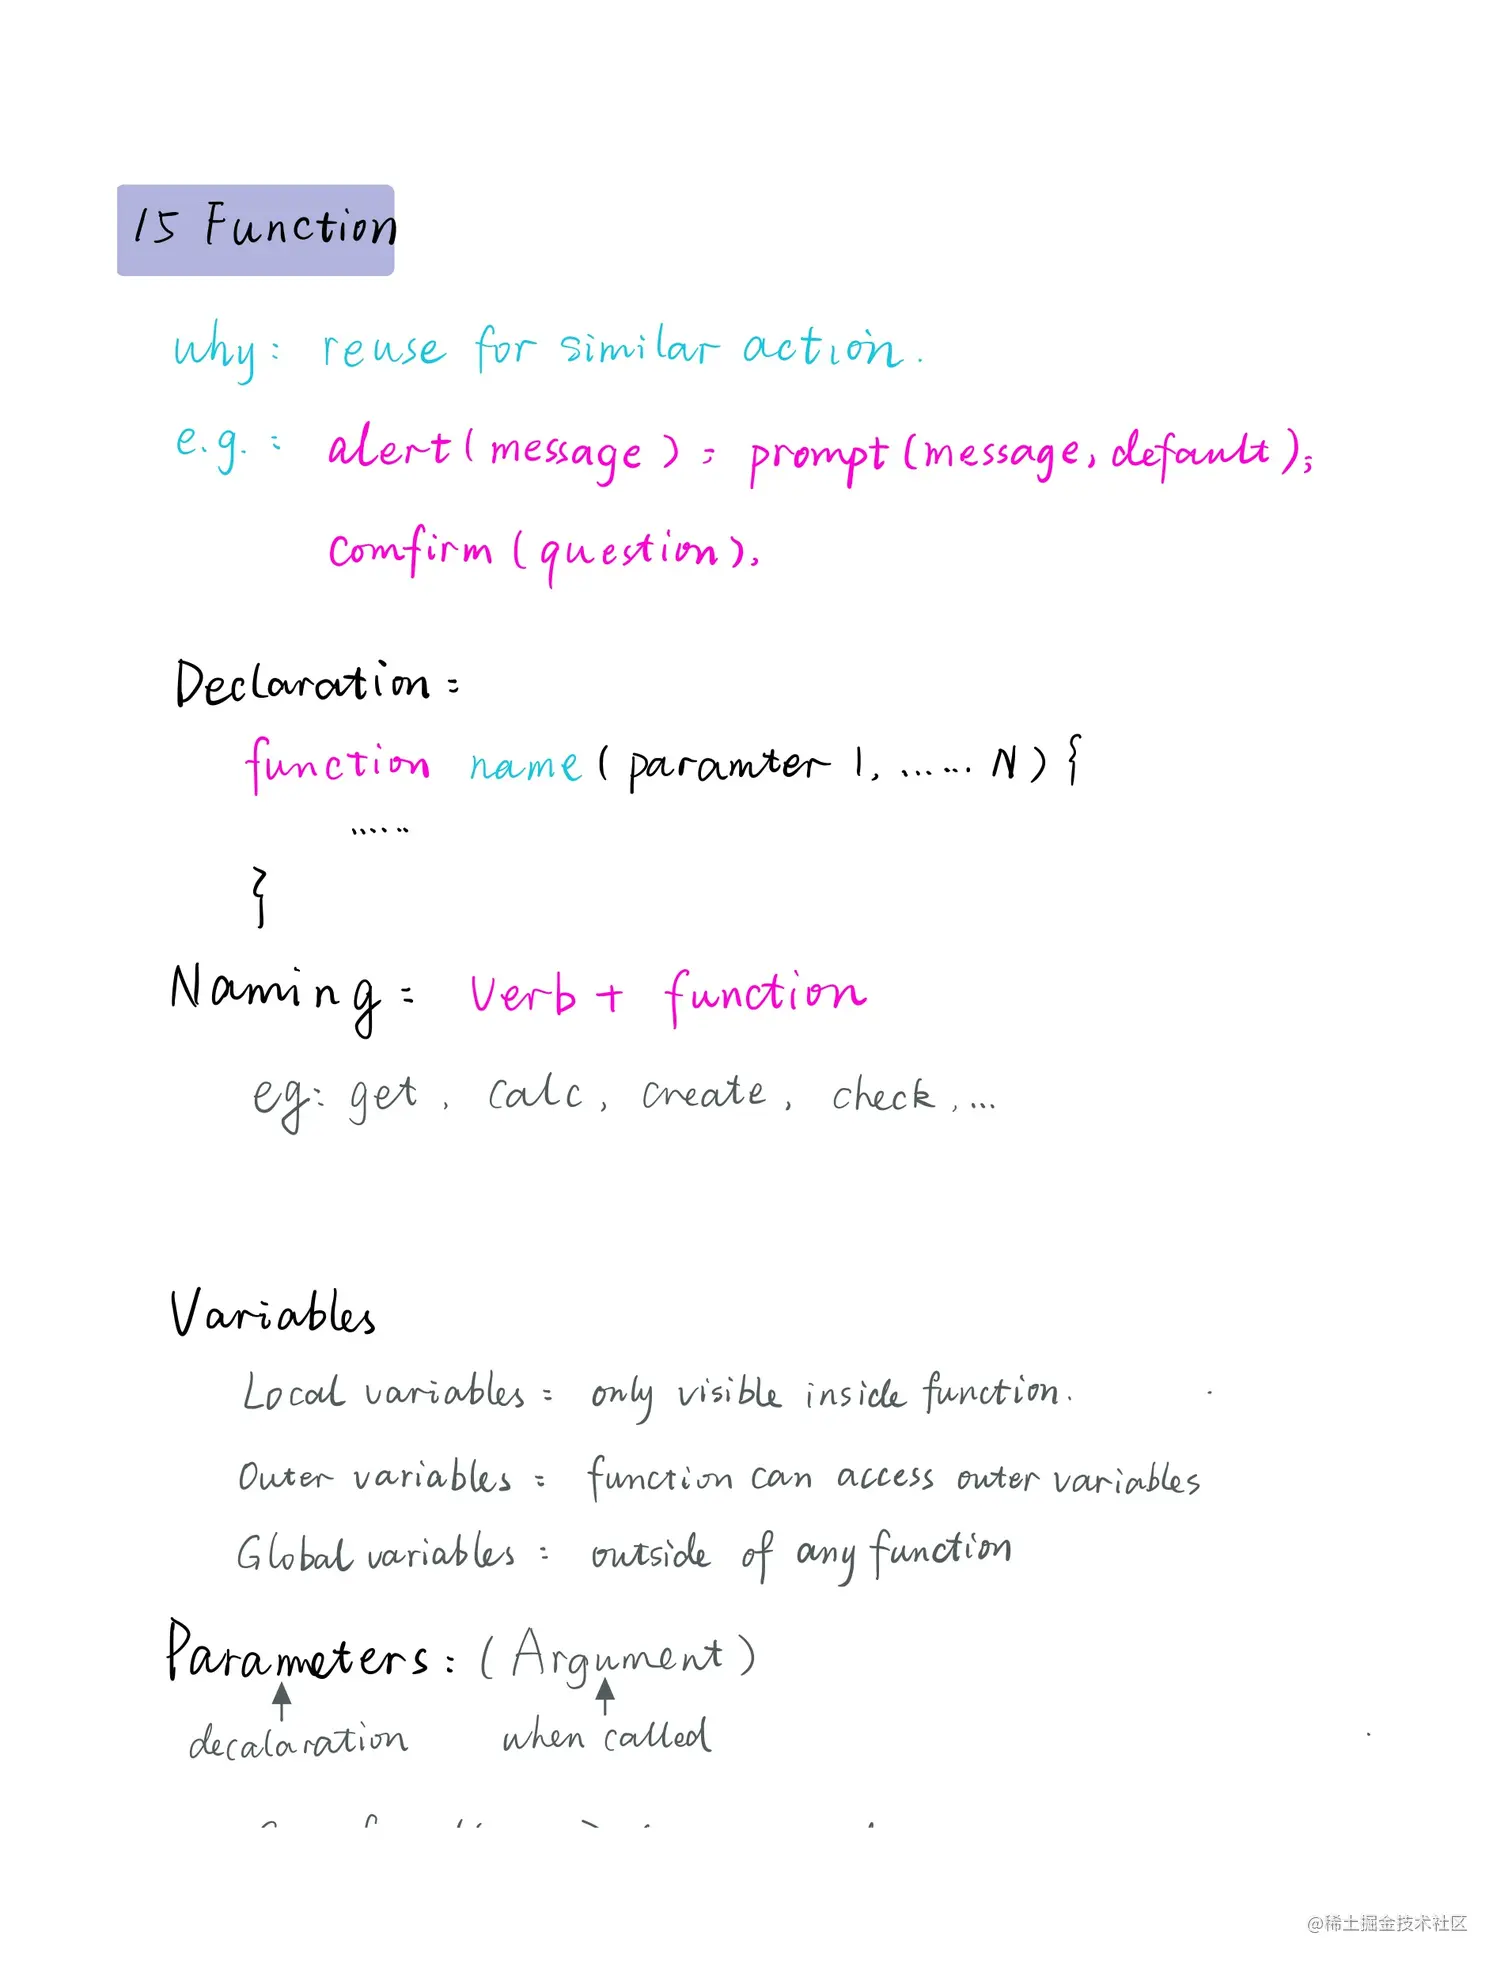 15 Function
why: reuse for similar action.
e.g.: alert(message); prompt(message, default);
comfirm(question).
Declaration:
function name(paramter 1, ...... N) {
......
}
Naming: Verb + function
eg: get, calc, create, check, ...
Variables
Local variables: only visible inside function.
Outer variables: function can access outer variables
Global variables: outside of any function
Parameters: (Argument)
decalaration when called
@稀土掘金技术社区